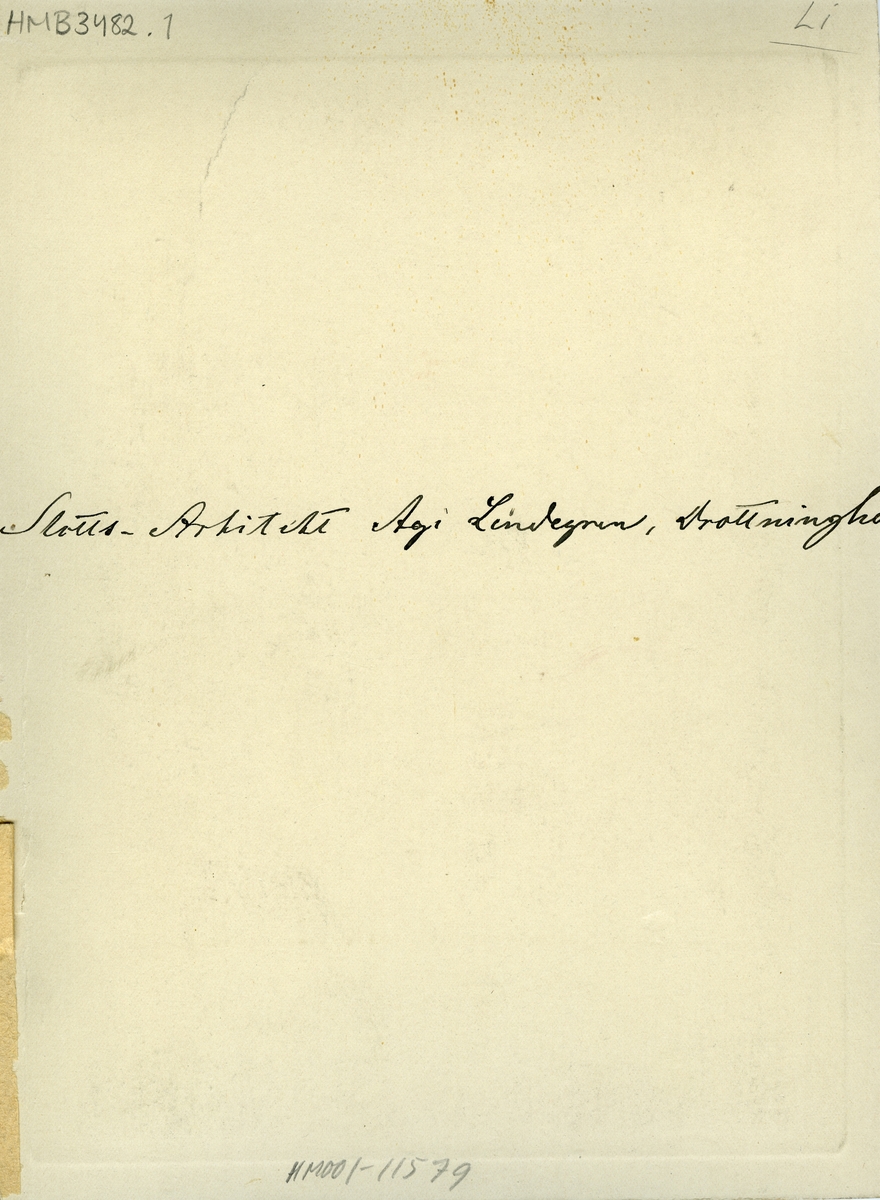 HMB3482.1
Li
Slotts-Arkitekt Agi Lindegren, Drottningho
HM001-11579